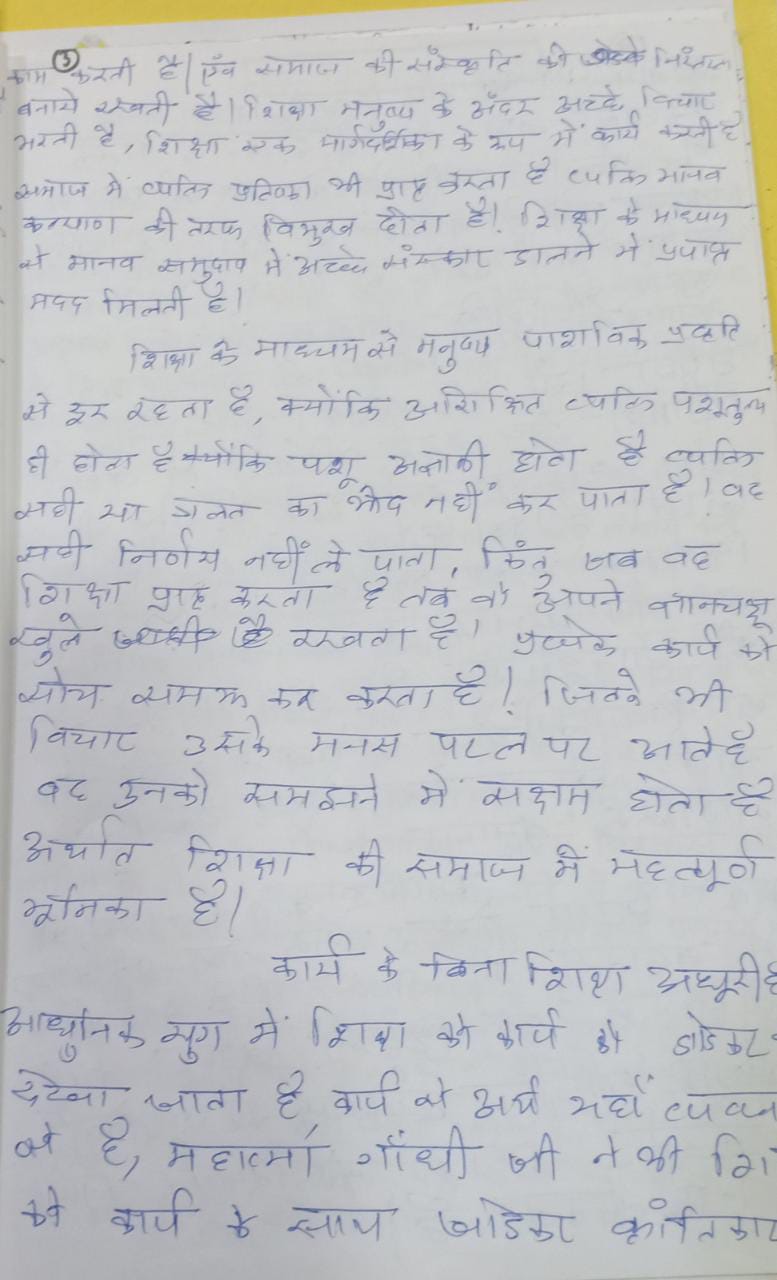 ③
काम करती है। एंव समाज की संस्कृति की निरंतरता
बनाये रखती है। शिक्षा मनुष्य के अंदर अच्छे विचार
भरती है, शिक्षा एक मार्गदर्शिका के रूप में कार्य करती है
समाज में व्यक्ति प्रतिष्ठा भी प्राप्त करता है व्यक्ति मानव
कल्याण की तरफ विमुख होता है। शिक्षा के माध्यम
से मानव समुदाय में अच्छे संस्कार डालने में
मदद मिलती है।
शिक्षा के माध्यम से मनुष्य पाशविक प्रवृत्ति
से दूर रहता है, क्योंकि अशिक्षित व्यक्ति पशूतुल्य
ही होता है क्योंकि पशू अज्ञानी होता है व्यक्ति
सही या गलत का भेद नहीं कर पाता है। वह
सही निर्णय नहीं ले पाता, किंतु जब वह
शिक्षा प्राप्त करता है तब वो अपने ज्ञानचक्षू
खुले रखता है। प्रत्येक कार्य को
सोच समझ कर करता है। जितने भी
विचार उसके मनस पटल पर आते है
वह उनको समझने में सक्षम होता है
अर्थात शिक्षा की समाज में महत्पूर्ण
भूमिका है।
कार्य के बिना शिक्षा अधूरी है
आधुनिक युग में शिक्षा को कार्य से जोडकर
देखा जाता है, कार्य से अर्थ यहाँ
से है, महात्मां गाँधी जी ने भी
को कार्य के साथ जोडकर